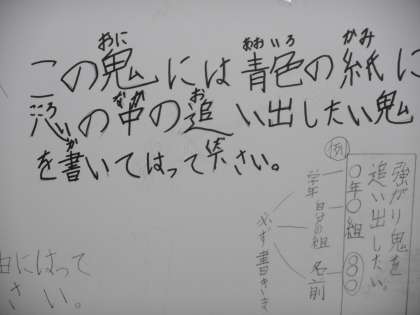 おに あおいろ かみ
この鬼には青色の紙に
こころ なか お
心の中の追い出したい鬼
か くだ
を書いてはって下さい。
例
強がり鬼を
追い出したい。
〇年〇組 〇〇〇
学年
自分の組
名前
必ず書きます
由にはって
さい。